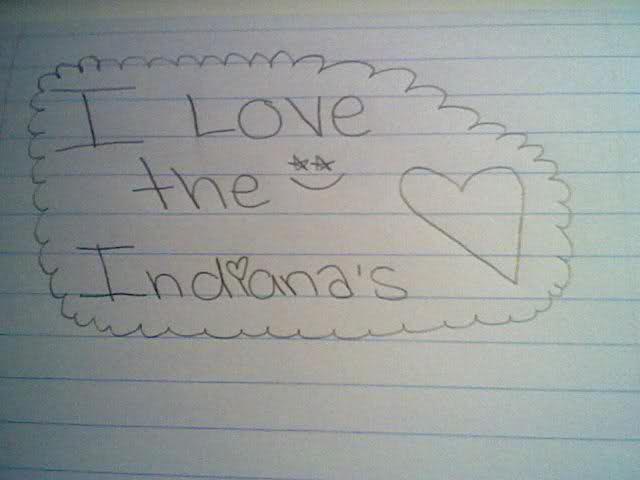 I Love
the
Indiana's